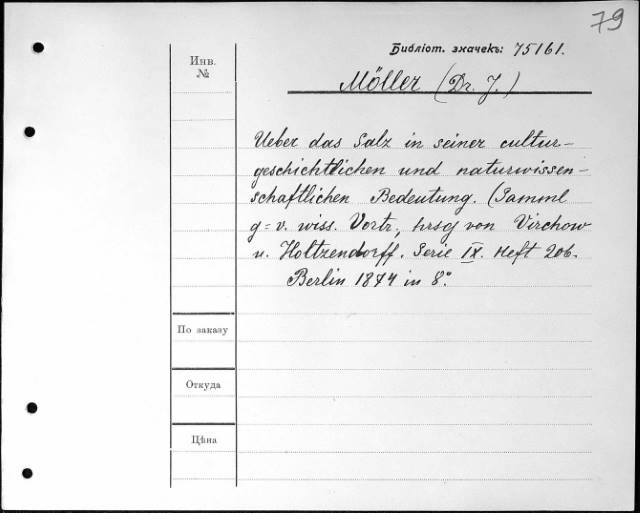 79
Библіот. значекъ: 75161.
Инв.
№
Möller (Dr. J.)
Ueber das Salz in seiner cultur-
geschichtlichen und naturwissen-
schaftlichen Bedeutung. (Samml
g=v. wiss. Vortr., hrsg von Virchow
u. Holtzendorff. Serie IX. Heft 206.
Berlin 1874 in 8°.
По заказу
Откуда
Цѣна